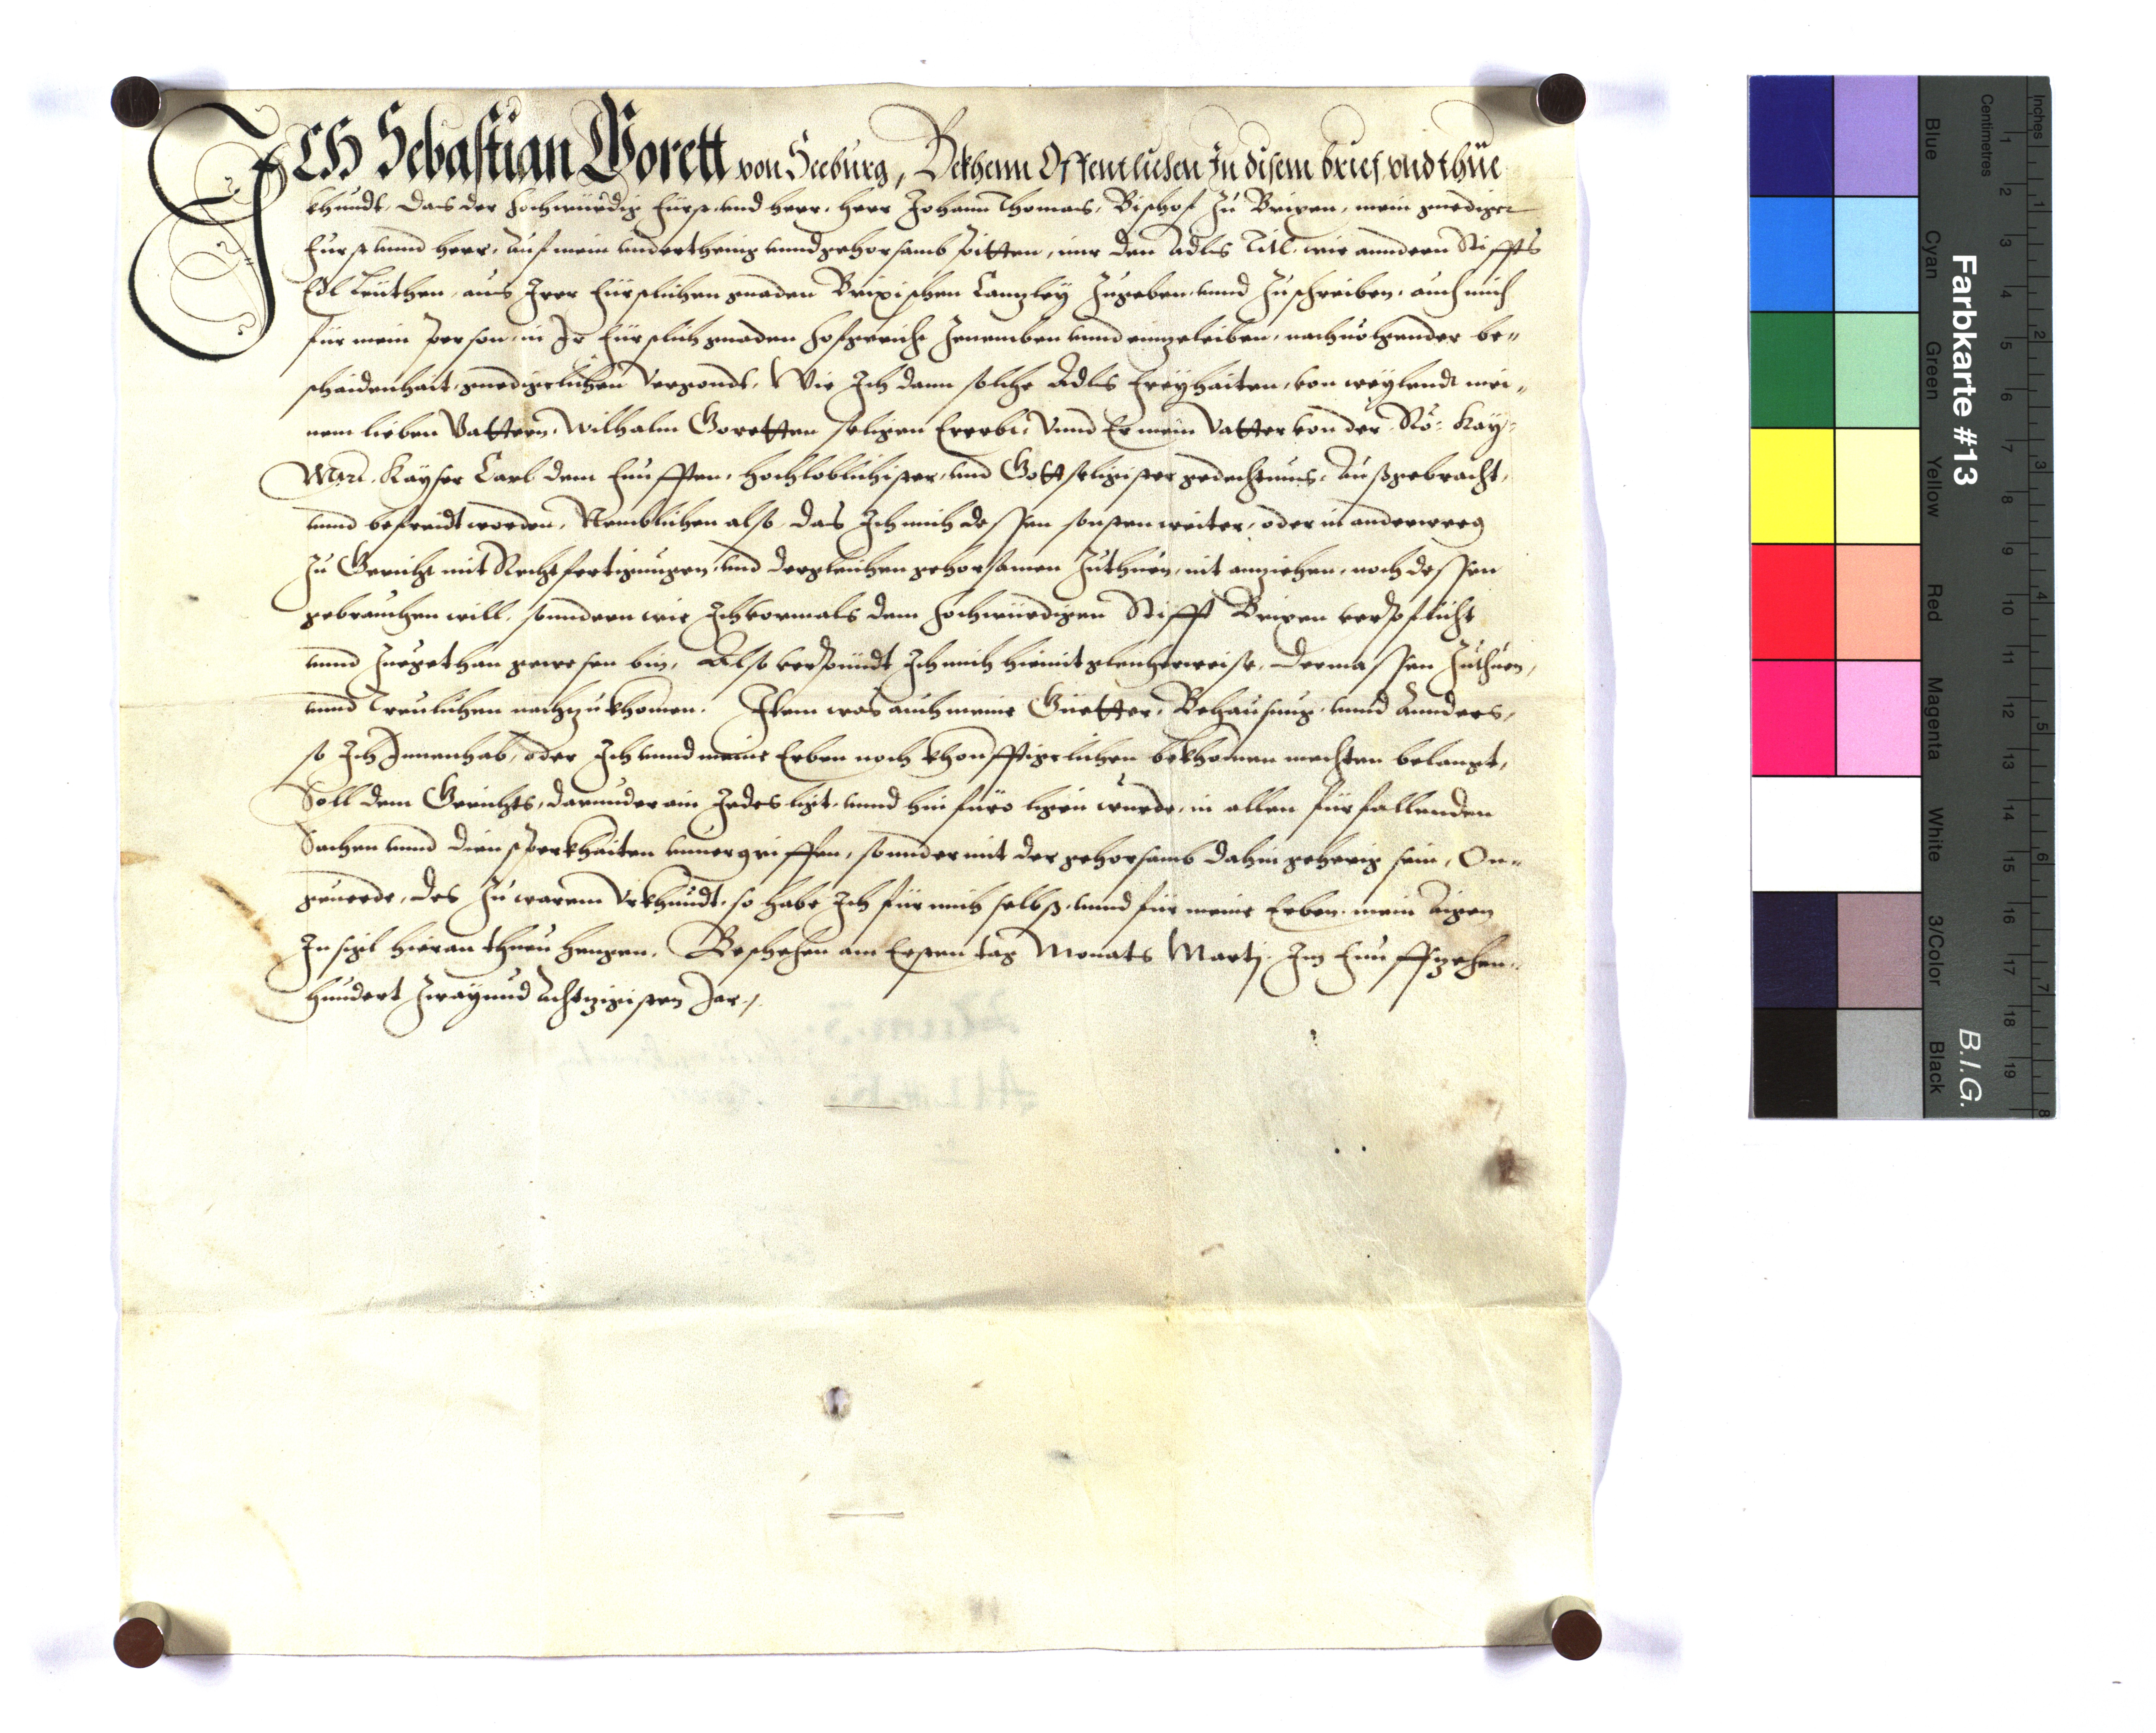 ICH Sebastian Gorett von Seeburg, Bekhenn Offentlichen In disem brief vnd thue
khundt, Das der Hochwürdig Fürst vnd herr, herr Johann Thomas, Bischof zu Brixen, mein gnediger
Fürst vnnd herr, auf mein vnderthenig vnnd gehorsamb pitten, mir den Adls Titl wie anndern Stiffts
Edl Leüthen, aus Irer Fürstlichen gnaden Brixischen Canzley zugeben vnnd zuschreiben, auch mich
für mein person, in Ir Fürstlich gnaden Hofgericht zenemben vnnd einzeleiben, nachuolgender be„
schaidenhait, gnedigclichen Vergondt, Wie Ich dann solche Adls Freyhaiten, von weylendt mei„
nem lieben Vattern, Wilhalm Goretten seligen Ererbt, Vnnd Er mein Vatter von der Rö: Kay:
Mait. Kayser Carl dem Funfften, hochloblichister, vnd Gottseligister gedechtnus, Außgebracht,
vnnd befreidt worden, Nemblichen also, das Ich mich dessen sonsten weiter, oder in anderweeg
zu Gericht mit Rechtfertigungen, vnd dergleichen gehorsamen zuthuen, nit anziehen, noch dessen
gebrauchen will, sonndern wie Ich vormals dem Hochwürdigen Stifft Brixen verpflicht
vnnd zuegethan gewesen bin, Also verpündt Ich mich hiemit gleicherweise, dermassen zuthuen,
vnnd Treulichen nachzukhomen. Item was auch meine Güetter, Behausung, vnnd Annders,
so Ich Innenhab, oder Ich vnnd meine Erben noch khonfftigclichen bekhomen mechten belangt,
Soll dem Gerichts, darunder ain Jedes ligt, vnnd hinfüro ligen wurde, in allen fürfallenden
Sachen vnnd dienstperkhaiten vnuergriffen, sonnder mit der gehorsamb dahin geherig sein, On„
geuerde, Des zu warem Vrkhundt, so habe Ich für mich selbst, vnnd für meine Erben, mein Aigen
Insigl hieran thuen hengen. Beschehen am Ersten tag Monats Martj. Im Funffzehen„
hundert Zwayund Achtzigisten Jar.
Farbkarte #13
B.I.G.
Inches
1 2 3 4 5 6 7 8
Centimetres
1 2 3 4 5 6 7 8 9 10 11 12 13 14 15 16 17 18 19
Blue
Cyan
Green
Yellow
Red
Magenta
White
3/Color
Black